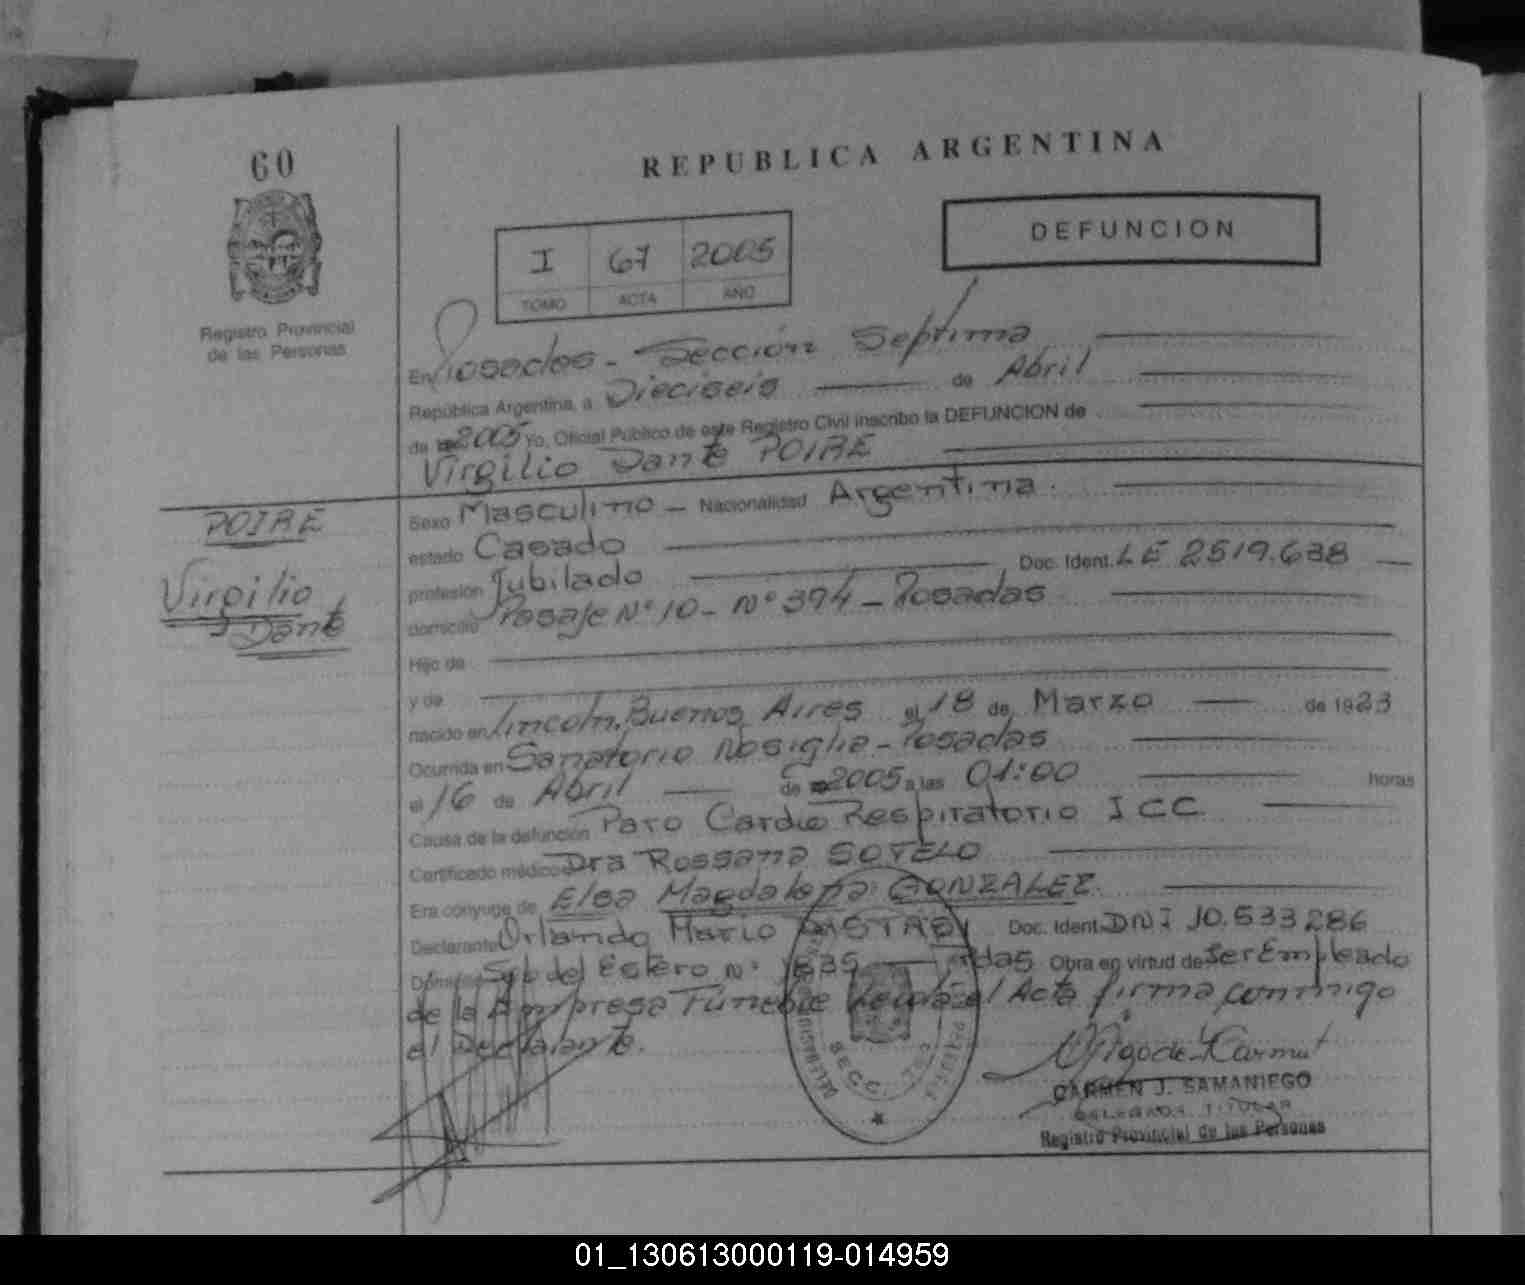 60
REPUBLICA ARGENTINA
DEFUNCION
I 67 2005
TOMO ACTA AÑO
Registro Provincial
de las Personas
En Posadas - Sección Septima
República Argentina, a Dieciseis de Abril
de 2005 Yo, Oficial Público de este Registro Civil inscribo la DEFUNCION de
Virgilio Dante POIRE
POIRE
Virgilio
Dante
Sexo Masculino - Nacionalidad Argentina.
estado Casado
profesión Jubilado Doc. Ident. LE 2519.638
domicilio Pasaje Nº 10 - Nº 394 - Posadas
Hijo de
y de
nacido en Lincoln, Buenos Aires el 18 de Marzo de 1923
Ocurrida en Sanatorio Nosiglia - Posadas
el 16 de Abril de 2005 a las 01:00 horas
Causa de la defunción Paro Cardio Respiratorio I CC
Certificado médico Dra Rossana SOTELO
Era cónyuge de Elsa Magdalena GONZALEZ.
Declarante Orlando Mario Doc. Ident. DNI 10.533286
Domicilio Sgo del Estero Nº 1835 Pdas Obra en virtud de Ser Empleado
de la Empresa Fúnebre Leida el Acta firma conmigo
el Declarante.
SECC.
CARMEN J. SAMANIEGO
DELEGADA TITULAR
Registro Provincial de las Personas
01_130613000119-014959